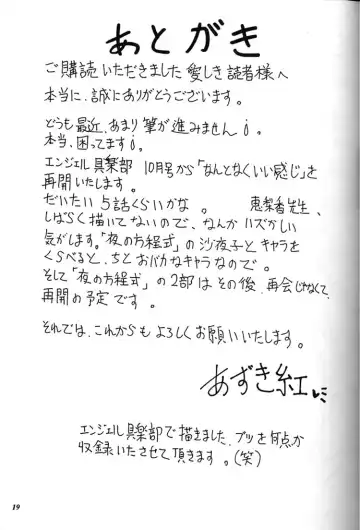 あとがき
ご購読いただきました愛しき読者様へ
本当に、誠にありがとうございます。
どうも最近、あまり筆が進みません。
本当、困ってます。
エンジェル倶楽部 10月号から「なんとなくいい感じ」を
再開いたします。
だいたい5話くらいかな。 恵梨香先生、
しばらく描いてないので、なんかハズかしい
気がします。「夜の方程式」の沙夜子とキャラを
くらべると、ちとおバカなキャラなので。
そして「夜の方程式」の2部はその後、再会じゃなくて、
再開の予定です。
それでは、これからもよろしくお願いいたします。
あずき紅
エンジェル倶楽部で描きました、ブツを何点か
収録いたさせて頂きます。(笑)
19